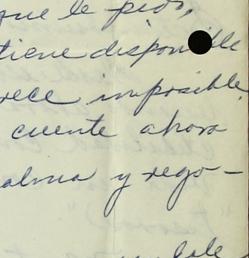 que le pido,
tiene disponible
rece imposible
cuente ahora
alma y rego-